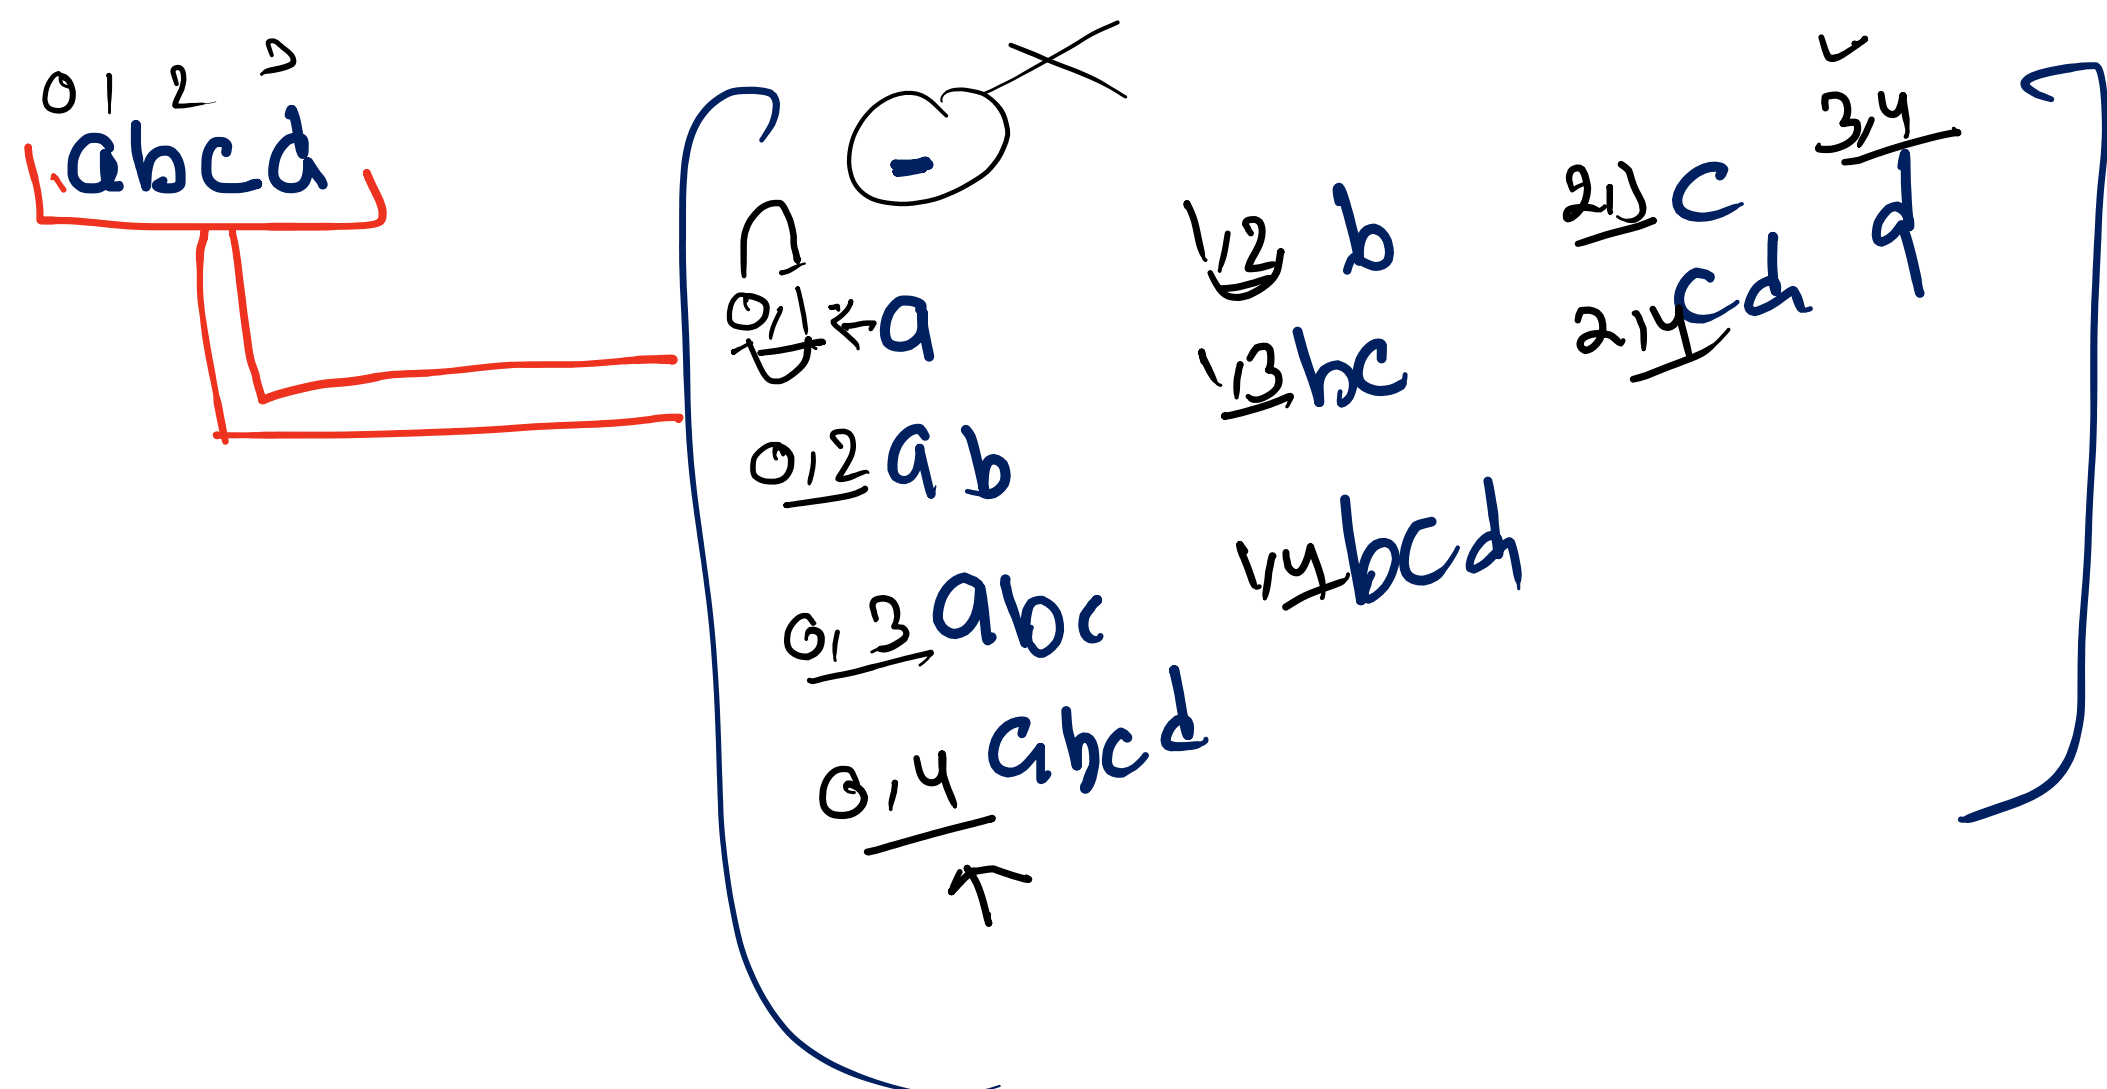 0 1 2 3
abcd
-
0,1 a
0,2 ab
0,3 abc
0,4 abcd
1,2 b
1,3 bc
1,4 bcd
2,3 c
2,4 cd
3,4
d